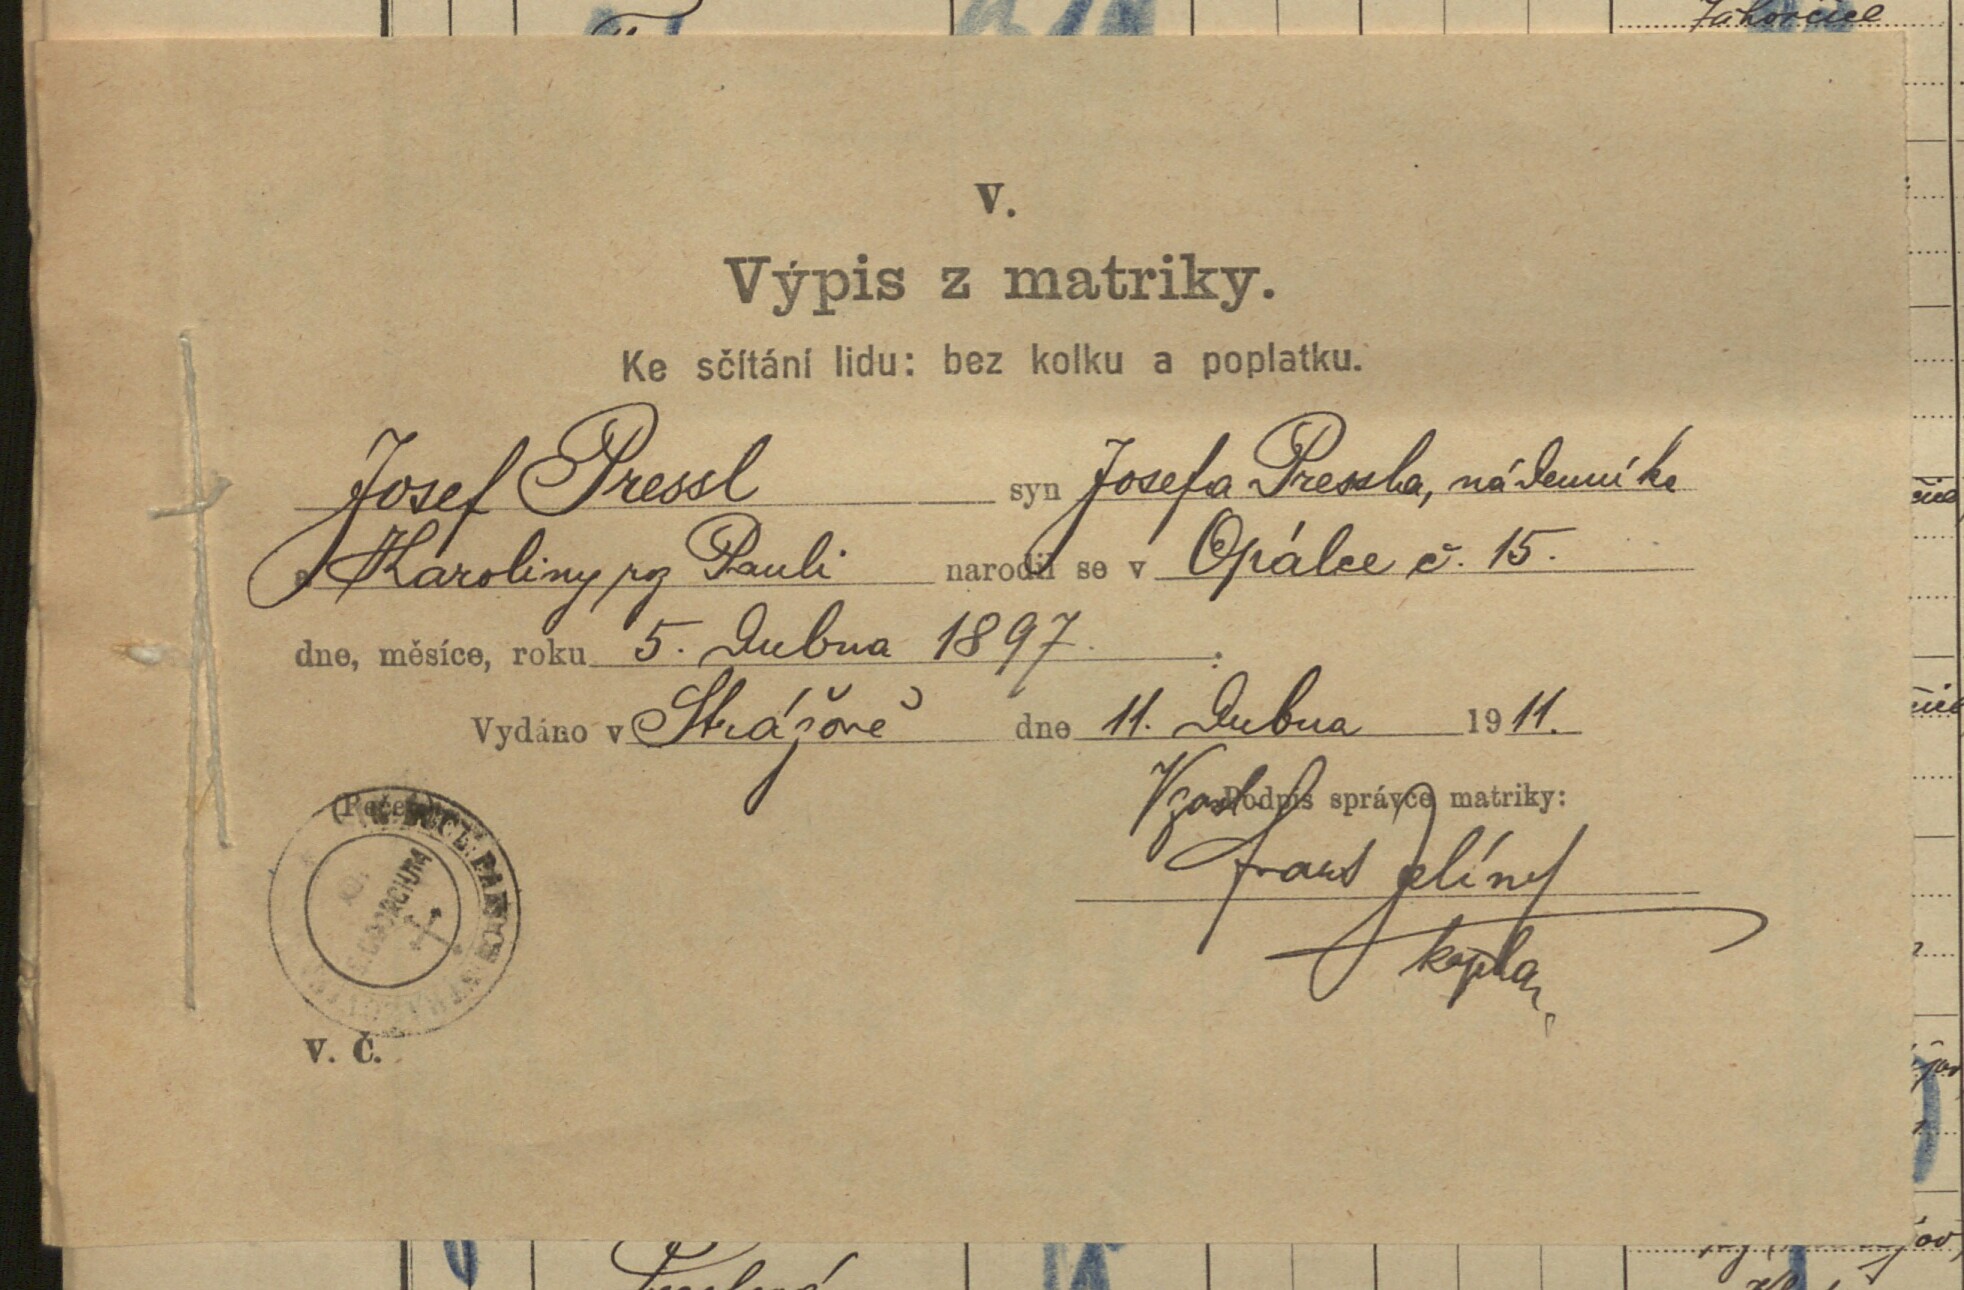 Záhorčice
V.
Výpis z matriky.
Ke sčítání lidu: bez kolku a poplatku.
Josef Pressl syn Josefa Pressla, nádenníka
a Karoliny roz Pauli narodil se v Opálce č. 15.
dne, měsíce, roku 5. Dubna 1897.
Vydáno v Strážově dne 11. Dubna 1911.
(Pečeť) Podpis správce matriky:
kaplan
V. Č.